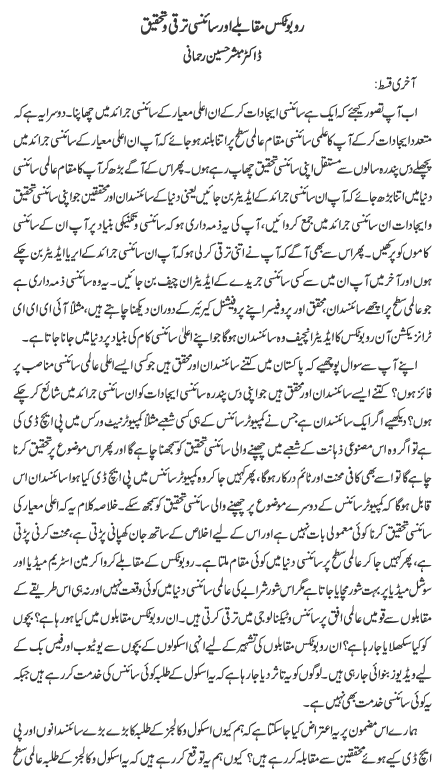 روبوٹکس مقابلے اور سائنسی ترقی و تحقیق
ڈاکٹر مبشر حسین رحمانی
آخری قسط:
اب آپ تصور کیجئے کہ ایک ہے سائنسی ایجادات کر کے ان اعلی معیار کے سائنسی جرائد میں چھاپنا۔ دوسرا یہ ہے کہ
متعدد ایجادات کر کے آپ کا علمی سائنسی مقام عالمی سطح پر اتنا بلند ہو جائے کہ آپ ان اعلی معیار کے سائنسی جرائد میں
پچھلے دس پندرہ سالوں سے مستقل اپنی سائنسی تحقیق چھاپ رہے ہوں۔ پھر اس کے آگے بڑھ کر آپ کا مقام عالمی سائنسی
دنیا میں اتنا بڑھ جائے کہ آپ ان سائنسی جرائد کے ایڈیٹر بن جائیں یعنی دنیا کے سائنسدان اور محققین جو اپنی سائنسی تحقیق
و ایجادات ان سائنسی جرائد میں جمع کروائیں، آپ کی یہ ذمہ داری ہو کہ سائنسی و تکنیکی بنیاد پر آپ ان کے سائنسی
کاموں کو پرکھیں۔ پھر اس سے بھی آگے کہ آپ نے اتنی ترقی کر لی ہو کہ آپ ان سائنسی جرائد کے ایریا ایڈیٹر بن چکے
ہوں اور آخر میں آپ ان میں سے کسی سائنسی جریدے کے ایڈیٹر ان چیف بن جائیں۔ یہ وہ سائنسی ذمہ داری ہے
جو عالمی سطح پر اچھے سائنسدان، محقق اور پروفیسر اپنے پروفیشنل کیرئیر کے دوران دیکھنا چاہتے ہیں، مثلاً آئی ای ای ای
ٹرانزیکشن آن روبوٹکس کا ایڈیٹر انچیف وہ سائنسدان ہوگا جو اپنے اعلیٰ سائنسی کام کی بنیاد پر دنیا میں جانا جاتا ہے۔
اپنے آپ سے سوال پوچھیے کہ پاکستان میں کتنے سائنسدان اور محقق ہیں جو کسی ایسے اعلی عالمی سائنسی مناصب پر
فائز ہوں؟ کتنے ایسے سائنسدان اور محقق ہیں جو اپنی دس پندرہ سائنسی ایجادات کو ان سائنسی جرائد میں شائع کر چکے
ہوں؟ دیکھیے اگر ایک سائنسدان ہے جس نے کمپیوٹر سائنس کے ہی کسی شعبے مثلاً کمپیوٹر نیٹ ورکس میں پی ایچ ڈی کی
ہے تو اگر وہ اس مصنوعی ذہانت کے شعبے میں چھپنے والی سائنسی تحقیق کو سمجھنا چاہے گا اور پھر اس موضوع پر تحقیق کرنا
چاہے گا تو اسے بھی کافی محنت اور ٹائم درکار ہوگا، پھر کہیں جا کر وہ کمپیوٹر سائنس میں پی ایچ ڈی کیا ہوا سائنسدان اس
قابل ہوگا کہ کمپیوٹر سائنس کے دوسرے موضوع پر چھپنے والی سائنسی تحقیق کو سمجھ سکے۔ خلاصہ کلام یہ کہ اعلی معیار کی
سائنسی تحقیق کرنا کوئی معمولی بات نہیں ہے اور اس کے لیے اخلاص کے ساتھ جان کھپانی پڑتی ہے، محنت کرنی پڑتی
ہے، پھر کہیں جا کر عالمی سطح پر سائنسی دنیا میں کوئی مقام ملتا ہے۔ روبوٹکس کے مقابلے کروا کر مین اسٹریم میڈیا اور
سوشل میڈیا پر بہت شور مچایا جاتا ہے مگر اس شور شرابے کی عالمی سائنسی دنیا میں کوئی وقعت نہیں اور نہ ہی اس طریقے کے
مقابلوں سے قومیں عالمی افق پر سائنس و ٹیکنالوجی میں ترقی کرتی ہیں۔ ان روبوٹکس مقابلوں میں کیا ہو رہا ہے؟ بچوں
کو کیا سکھلایا جا رہا ہے؟ ان روبوٹکس مقابلوں کی تشہیر کے لیے انہی اسکولوں کے بچوں سے یوٹیوب اور فیس بک کے
لیے ویڈیوز بنوائی جا رہی ہیں۔ لوگوں کو یہ تاثر دیا جا رہا ہے کہ یہ اسکول کے طلبہ کوئی سائنس کی خدمت کر رہے ہیں جبکہ
یہ کوئی سائنسی خدمت بھی نہیں ہے۔
ہمارے اس مضمون پر یہ اعتراض کیا جا سکتا ہے کہ ہم کیوں اسکول و کالجز کے طلبہ کا بڑے بڑے سائنسدانوں اور پی
ایچ ڈی کیے ہوئے محققین سے مقابلہ کر رہے ہیں؟ کیوں ہم یہ توقع کر رہے ہیں کہ یہ اسکول و کالجز کے طلبہ عالمی سطح